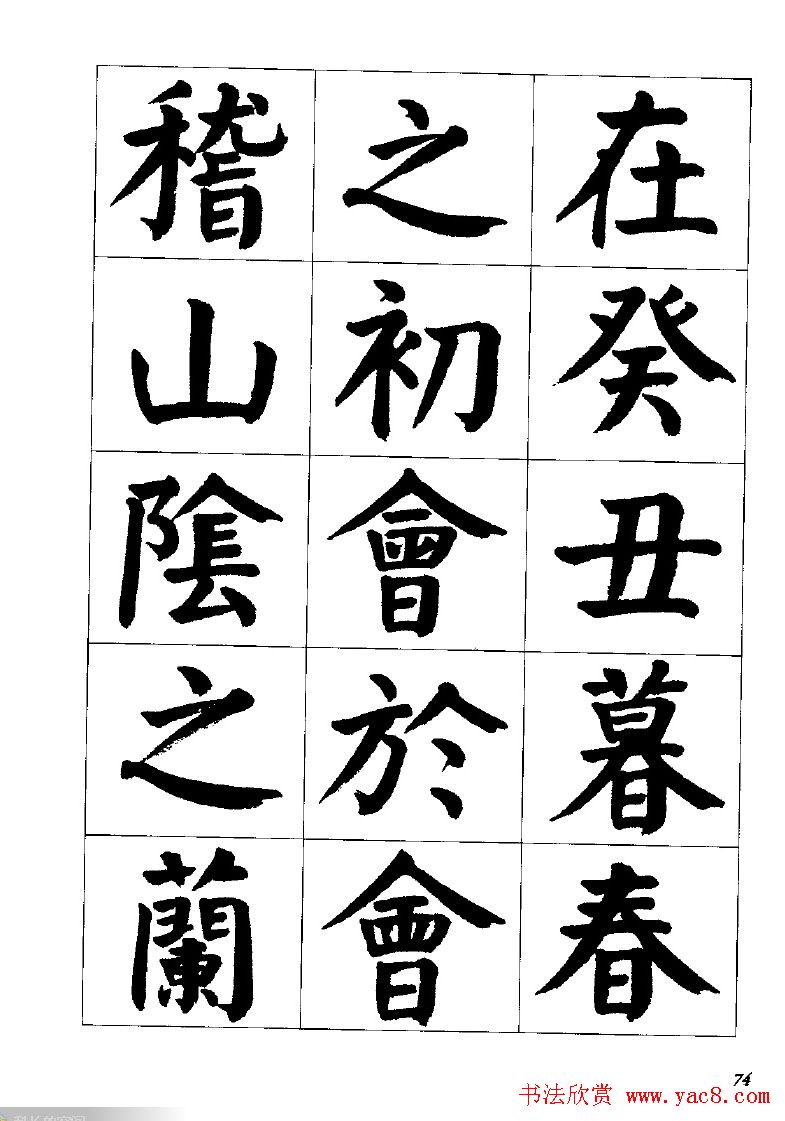 在癸丑暮春
之初會於會
稽山陰之蘭
74
书法欣赏 www.yac8.com